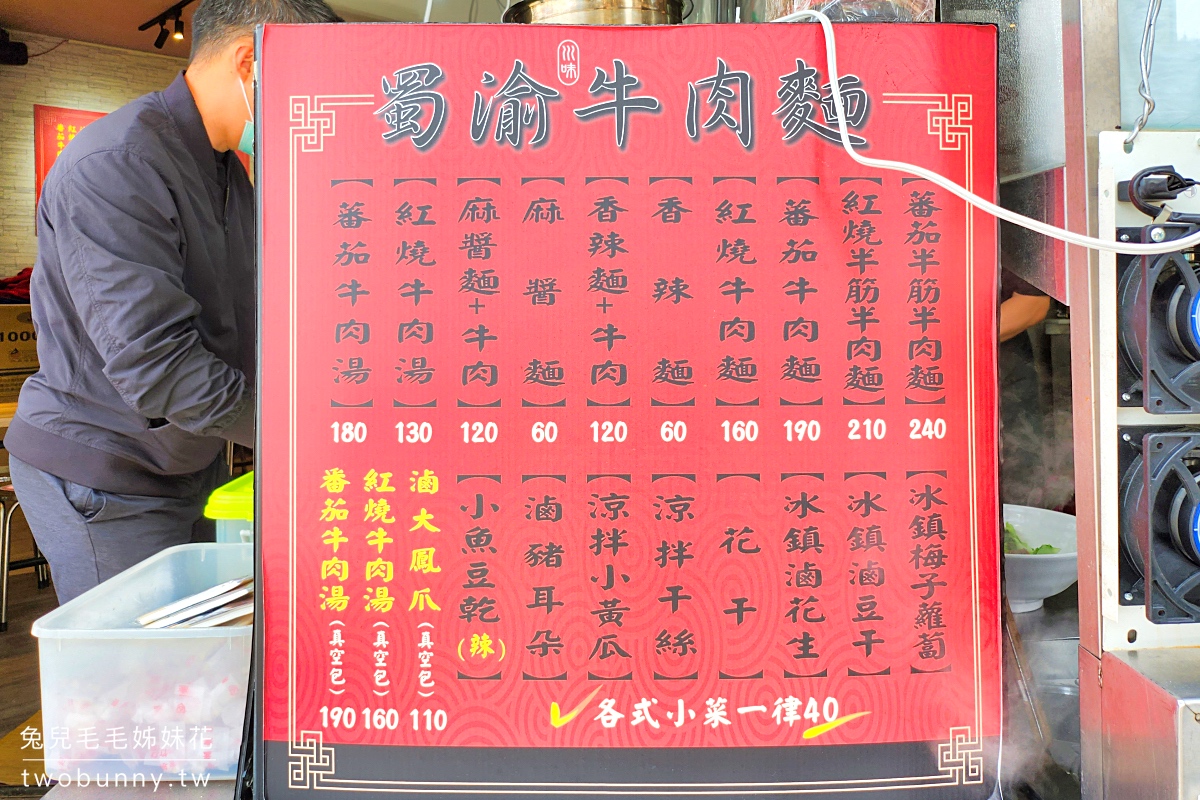 川味
蜀渝牛肉麵
蕃茄半筋半肉麵 240
紅燒半筋半肉麵 210
蕃茄牛肉麵 190
紅燒牛肉麵 160
香辣麵 60
香辣麵+牛肉 120
麻醬麵 60
麻醬麵+牛肉 120
紅燒牛肉湯 130
蕃茄牛肉湯 180
冰鎮梅子蘿蔔
冰鎮滷豆干
冰鎮滷花生
花干
涼拌干絲
涼拌小黃瓜
滷豬耳朵
小魚豆乾(辣)
滷大鳳爪(真空包) 110
紅燒牛肉湯(真空包) 160
番茄牛肉湯(真空包) 190
各式小菜一律40
兔兒毛毛姊妹花
twobunny.tw